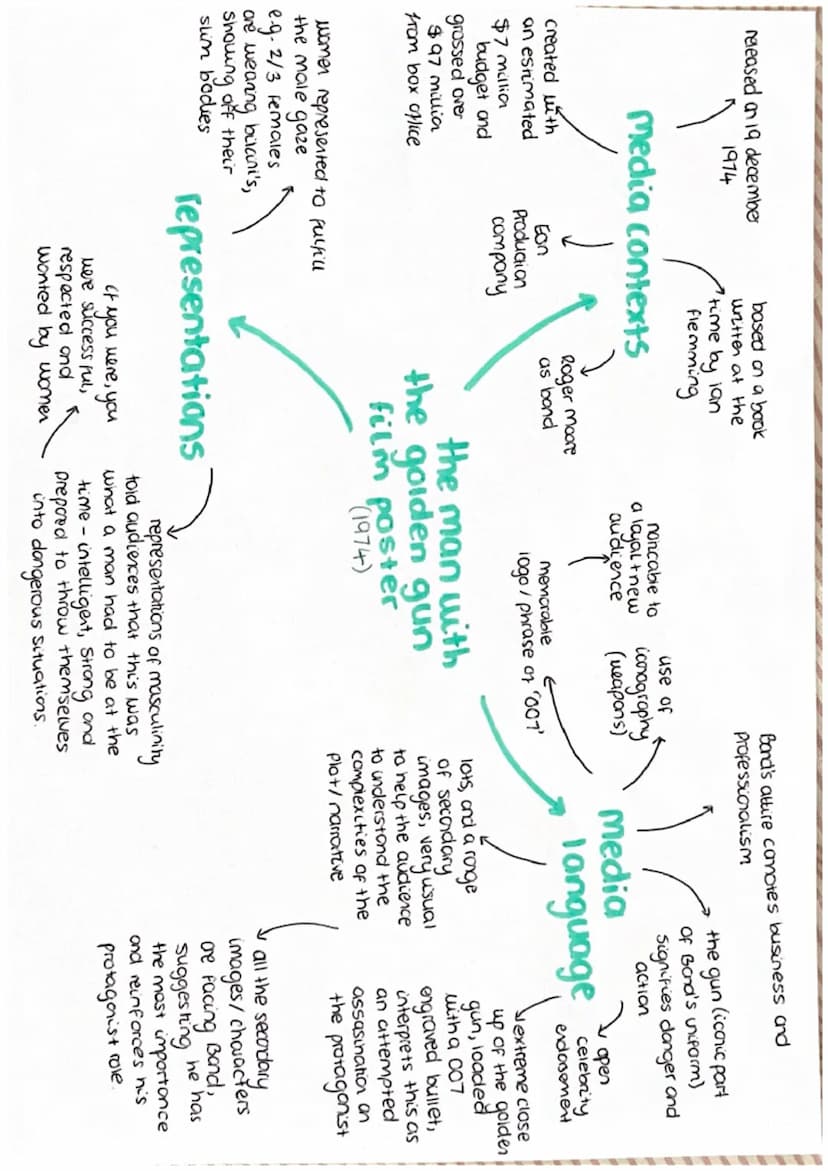 the man with
the golden gun
film poster
(1974)
media contexts
released on 19 december
1974
based on a book
written at the
time by ian
flemming
created with
an estimated
$7 million
budget and
grossed over
$97 million
from box office
Eon
Production
company
Roger moore
as bond
media
language
Bond's attire connotes business and
professionalism
the gun (iconic part
of Bond's uniform)
signifies danger and
action
use of
iconography
(weapons)
memorable
logo / phrase of '007'
noticable to
a loyal + new
audience
open
celebrity
endorsement
extreme close
up of the golden
gun, loaded
with a 007
engraved bullet,
interprets this as
an attempted
assasination on
the protagonist
lots, and a range
of secondary
images, very usual
to help the audience
to understand the
complexities of the
plot / narrative
all the secondary
images / characters
are facing Bond,
suggesting he has
the most importance
and reinforces his
protagonist role.
representations
women represented to fulfill
the male gaze
e.g. 2/3 females
are wearing bikini's,
showing off their
slim bodies
representations of masculinity
told audiences that this was
what a man had to be at the
time - intelligent, strong and
prepared to throw themselves
into dangerous situations.
if you were, you
were successful,
respected and
wanted by women